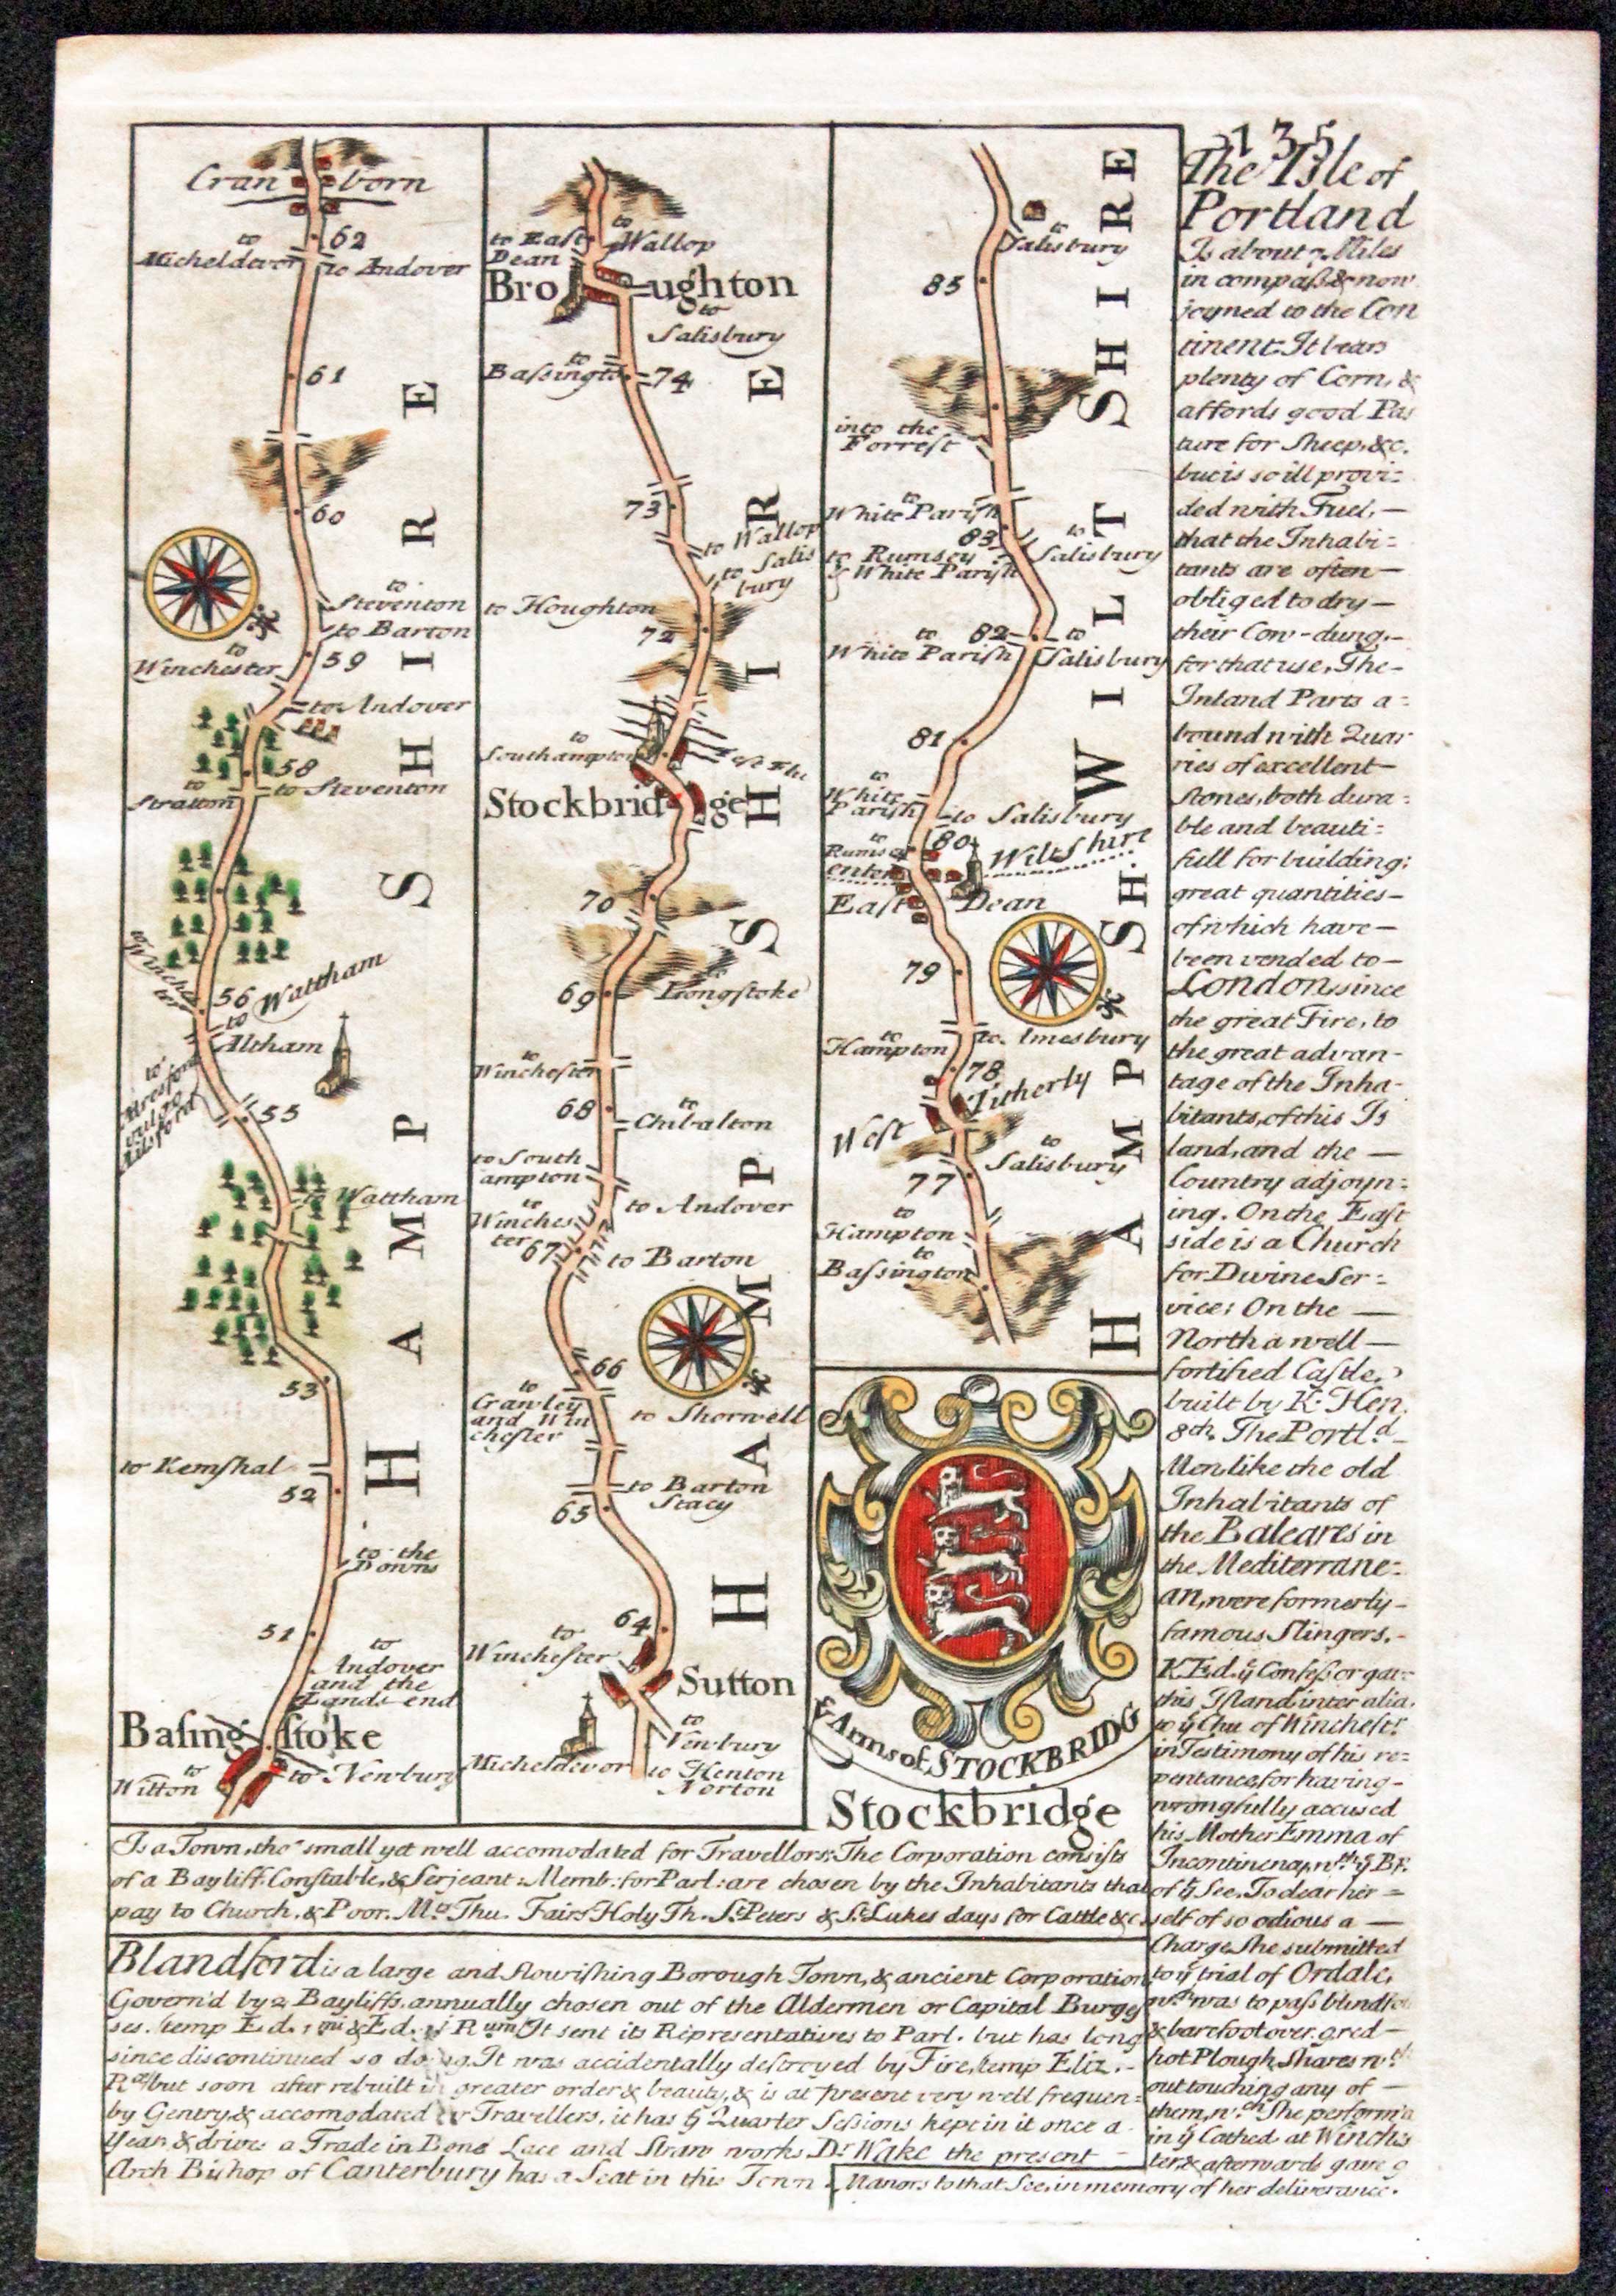 135
Cran born
62
to Micheldevor
to Andover
61
60
to Steventon
to Barton
59
to Winchester
to Andover
58
to Stratton
to Steventon
56
to Waltham
Altham
55
to Waltham
53
to Kemſhal
52
to the Downs
51
to Andover
and the
Lands end
Baſing ſtoke
to Witton
to Newbury
HAMPSHIRE
to Eaſt
Dean
to Wallop
Bro ughton
to Salisbury
to Baſsington
74
73
to Wallop
to Salis
bury
to Houghton
72
to Southampton
Stockbrid ge
70
69
Longſtoke
to Wincheſter
68
to Chibalton
to South
ampton
to Winches
ter
67
to Andover
to Barton
66
to Crawley
and Win
cheſter
to Shorwell
to Barton
Stacy
65
64
to Wincheſter
Sutton
to Newbury
Micheldevor
to Henton
Norton
HAMPSHIRE
to Salisbury
85
into the
Forreſt
to White Pariſh
83
to Salisbury
to Rumsey
& White Pariſh
82
to White Pariſh
to Salisbury
81
to White
Pariſh
to Salisbury
80
Wiltshire
enter
Eaſt Dean
79
to Hampton
to Amesbury
78
Weſt Titherly
to Salisbury
77
to Hampton
to Baſsington
HAMPSH.
WILTSHIRE
ẙ Arms of STOCKBRIDG
Stockbridge
Is a Town, tho' small yet well accomodated for Travellors: The Corporation consists
of a Bayliff, Constable, & Serjeant: Memb: for Parl: are chosen by the Inhabitants that
pay to Church, & Poor. Mt. Thu. Fairs Holy Th. St. Peters & St. Lukes days for Cattle &c.
Blandford is a large and flouriſhing Borough Town, & ancient Corporation
Govern'd by 2 Bayliffs, annually chosen out of the Aldermen or Capital Burgeſ
ses. temp Ed. It sent its Representatives to Parl. but has long
since discontinued so doing. It was accidentally deſtroyed by Fire, temp Eliz.
but soon after rebuilt in greater order & beauty, & is at present very well frequen=
by Gentry, & accomodated for Travellers, it has ẙ Quarter Seſsions kept in it once a
Year, & drives a Trade in Bone Lace and Straw works Dr. Wake the present
Arch Bishop of Canterbury has a Seat in this Town
The Isle of
Portland
Is about 7 Miles
in compaſs & now
joyned to the Con
tinent: It bears
plenty of Corn, &
affords good Pas
ture for Sheep, &c.
but is so ill provi=
ded with Fuel,
that the Inhabi=
tants are often
obliged to dry
their Cow-dung
for that use, The
Inland Parts a=
bound with Quar
ries of excellent
Stones, both dura=
ble and beauti=
full for building;
great quantities
of which have
been vended to
London, since
the great Fire, to
the great advan-
tage of the Inha-
bitants, of this Is
land, and the
Country adjoyn=
ing. On the Eaſt
side is a Church
for Divine Ser=
vice; On the
North a well
fortified Caſtle,
built by K. Hen.
8th. The Portld
Men like the old
Inhabitants of
the Baleares in
the Mediterrane=
an, were formerly
famous Slingers.
K. Ed. ẙ Confeſsor gave
this Iſland inter alia,
to ẙ Chu of Wincheſtr
in Testimony of his re=
pentance, for having
wrongfully accused
his Mother Emma of
Incontinency, wth ẙ Bp.
of ẙ See. To clear her=
self of so odious a
Charge, She submitted
to ẙ trial of Ordale,
wch was to paſs blindfo
& barefoot over 9 red
hot Plough Shares wth
out touching any of
them, wch She perform'd
in ẙ Cathed. at Winchs
ter, & afterwards gave 9
Manors to that See, in memory of her deliverance.